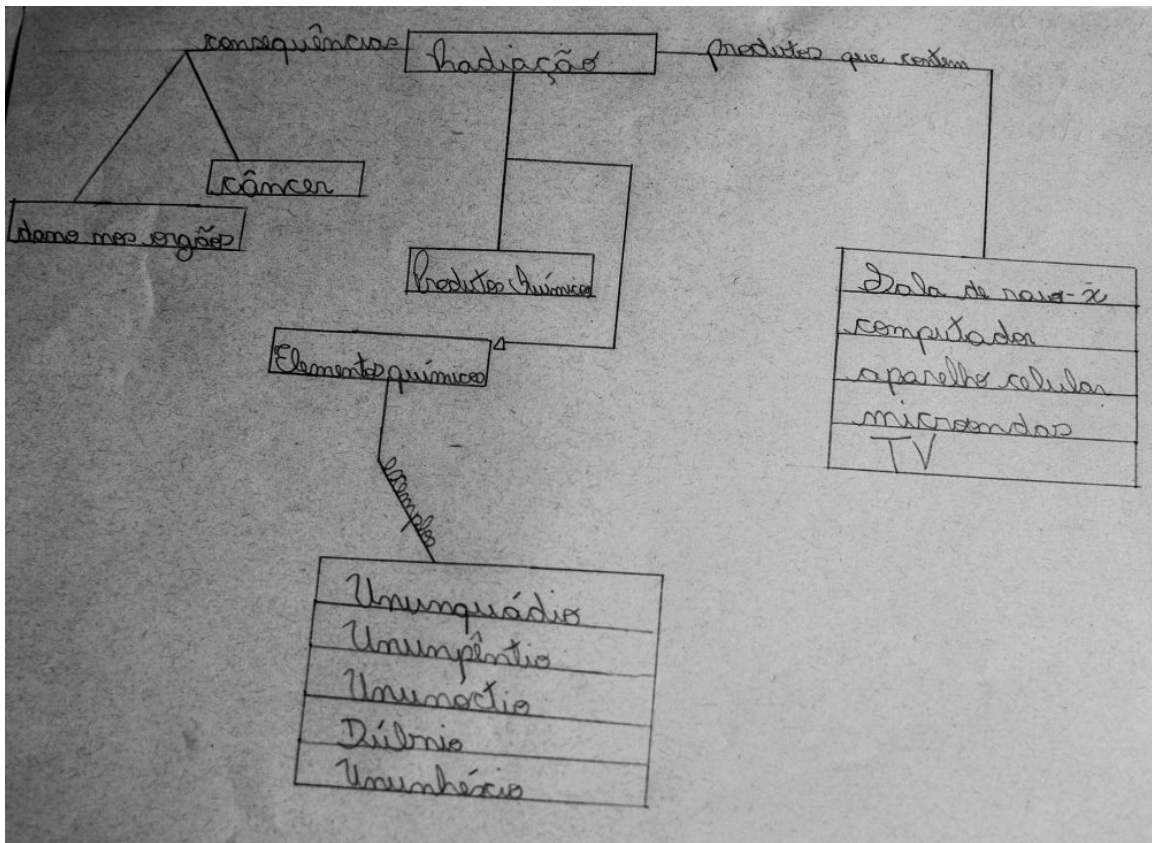 consequências
Radiação
produtos que contem
câncer
dano nos orgãos
Produtos Químicos
Elementos químicos
exemplos
Sala de raio-x
computador
aparelho celular
microondas
TV
Ununquádio
Ununpêntio
Ununoctio
Dúbnio
Ununhéxio